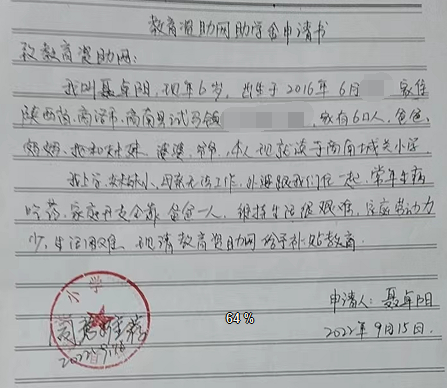 教育资助网助学金申请书
致教育资助网:
我叫聂卓阳,现年6岁,出生于2016年6月 家住
陕西省,商洛市,商南县试马镇 ,家有6口人,爸爸、
妈妈、我和妹妹、婆婆、爷爷,本人现就读于商南城关小学
我上学,妹妹小,母亲无法工作,外婆跟我们住一起,常年生病
吃药,家庭开支全靠爸爸一人,维持生活很艰难,家庭劳动力
少,生活困难、现请教育资助网给予补贴教育.
申请人:聂卓阳
2022年9月15日.
小学
64%